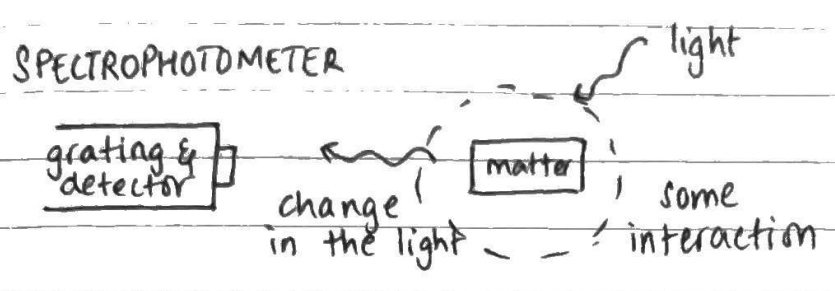 SPECTROPHOTOMETER
light
grating &
detector
matter
change
in the light
some
interaction